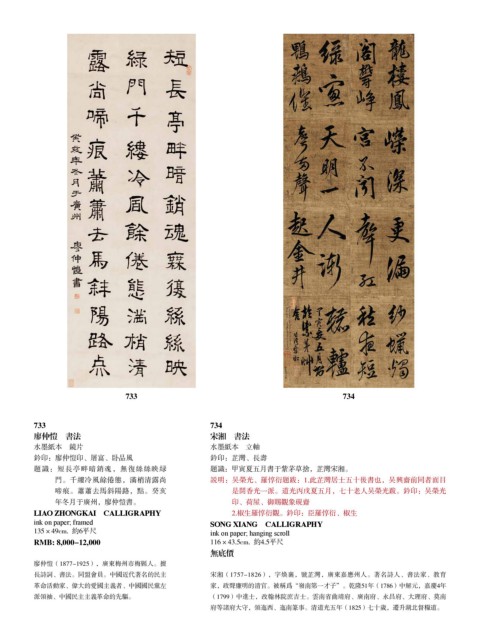 短長亭畔暗銷魂無復絲絲映
綠門千縷冷風餘倦態滿梢清
露尚啼痕蕭蕭去馬斜陽路点
癸亥年冬月于廣州 廖仲愷書
龍樓鳳嶸深更漏紗蠟燭
閣聳崢宮不聞聲紅夜短
天明一人漸轆轤
聲起金井
733
734
733
廖仲愷 書法
水墨紙本 鏡片
鈐印：廖仲愷印、屠富、卧品風
題識：短長亭畔暗銷魂，無復絲絲映綠
門。千縷冷風綠倦態，滿梢清露尚
啼痕。蕭蕭去馬斜陽路，點。癸亥
年冬月于廣州，廖仲愷書。
LIAO ZHONGKAI CALLIGRAPHY
ink on paper; framed
135×49cm. 約6平尺
RMB: 8,000–12,000
廖仲愷（1877–1925），廣東梅州市梅縣人。擅
長詩詞、書法。同盟會員。中國近代著名的民主
革命活動家、偉大的愛國主義者、中國國民黨左
派領袖、中國民主主義革命的先驅。
734
宋湘 書法
水墨紙本 立軸
鈐印：芷灣、長壽
題識：甲寅夏五月書于紫茅草舍，芷灣宋湘。
說明：吳榮光、羅惇衍題跋：1.此芷灣居士五十後書也，吳興書前同者而目
是間香光一派。道光丙戌夏五月，七十老人吳榮光觀。鈐印：吳榮光
印、荷屋、御賜觀象硯齋
2.椒生羅惇衍觀。鈐印：臣羅惇衍、椒生
SONG XIANG CALLIGRAPHY
ink on paper; hanging scroll
116×43.5cm. 約4.5平尺
無底價
宋湘（1757–1826），字煥襄，號芷灣，廣東嘉應州人。著名詩人、書法家、教育
家，政聲廉明的清官。被稱爲“嶺南第一才子”。乾隆51年（1786）中解元，嘉慶4年
（1799）中進士，改翰林院庶吉士。雲南省曲靖府、廣南府、永昌府、大理府、莫南
府等諸府大守，領迤西、迤南篆事。清道光五年（1825）七十歲，遷升湖北督糧道。